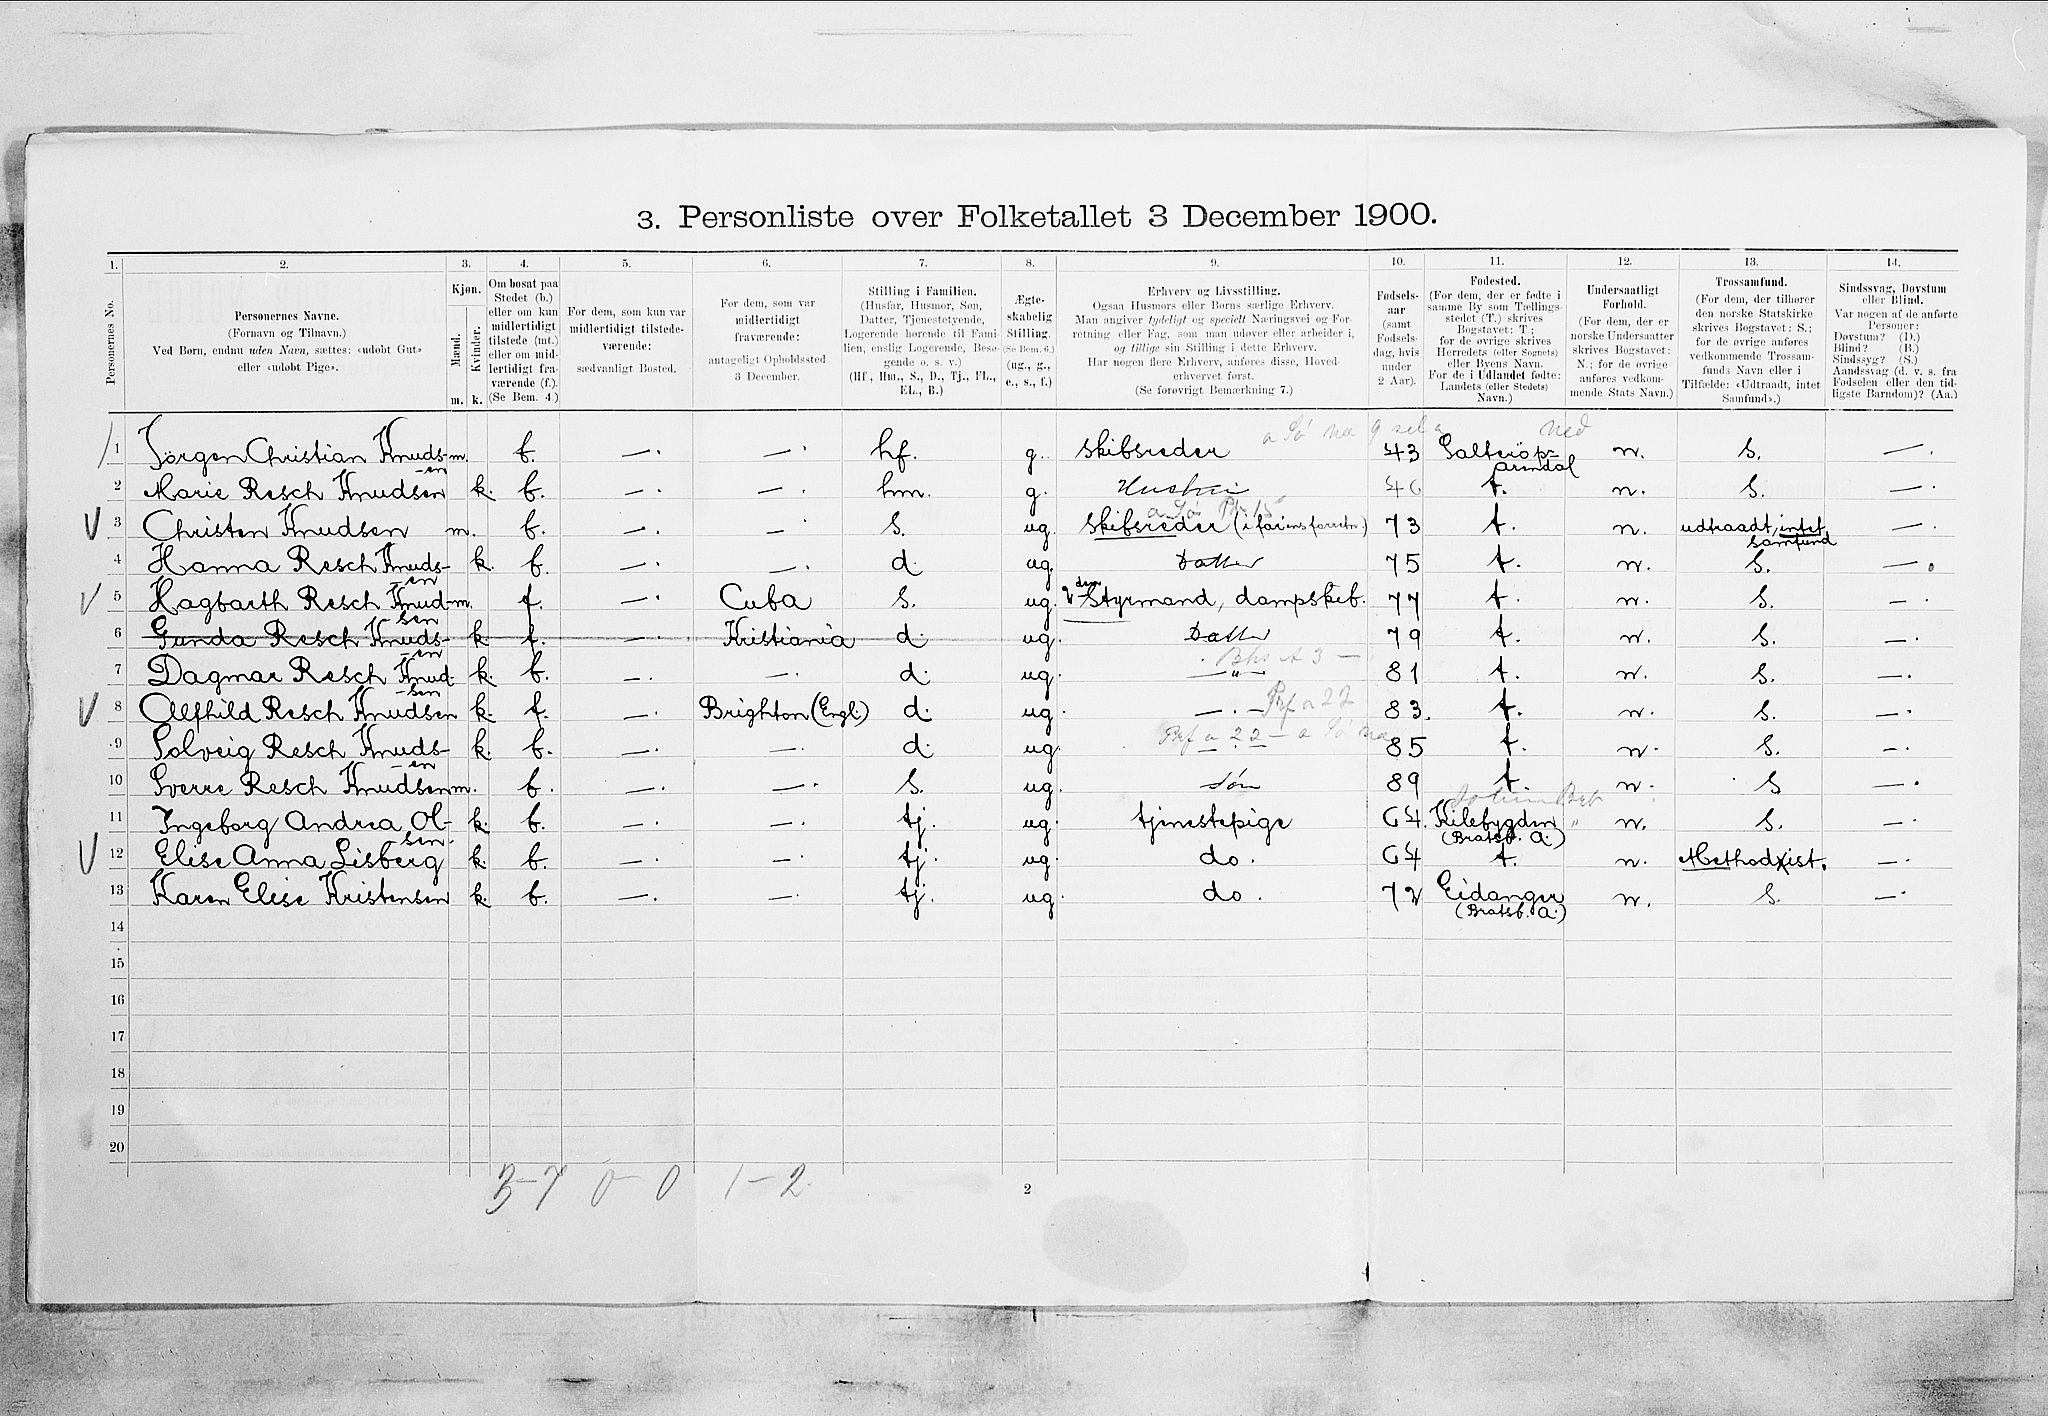 3. Personliste over Folketallet 3 December 1900.
1. 2. 3. 4. 5. 6. 7. 8. 9. 10. 11. 12. 13. 14.
Personernes No.
Personernes Navne.
(Fornavn og Tilnavn.)
Ved Børn, endnu uden Navn, sættes: «udøbt Gut»
eller «udøbt Pige».
Kjøn.
Mænd.
Kvinder.
m. k.
Om bosat paa
Stedet (b.)
eller om kun
midlertidigt
tilstede (mt.)
eller om mid-
lertidigt fra-
værende (f.).
(Se Bem. 4.)
For dem, som kun var
midlertidigt tilstede-
værende:
sædvanligt Bosted.
For dem, som var
midlertidigt
fraværende:
antageligt Opholdssted
3 December.
Stilling i Familien.
(Husfar, Husmor, Søn,
Datter, Tjenestetyende,
Logerende hørende til Fami-
lien, enslig Logerende, Besø-
gende o. s. v.)
(Hf., Hm., S., D., Tj., FL.,
EL., B.)
Ægte-
skabelig
Stilling.
(Se Bem. 6.)
(ug., g.,
e., s., f.)
Erhverv og Livsstilling.
Ogsaa Husmors eller Børns særlige Erhverv.
Man angiver tydeligt og specielt Næringsvei og For-
retning eller Fag, som man udøver eller arbeider i,
og tillige sin Stilling i dette Erhverv.
Har nogen flere Erhverv, anføres disse, Hoved-
erhvervet først.
(Se forøvrigt Bemærkning 7.)
Fødsels-
aar
(samt
Fødsels-
dag, hvis
under
2 Aar).
Fødested.
(For dem, der er fødte i
samme By som Tællings-
stedet (T.) skrives
Bogstavet: T.;
for de øvrige skrives
Herredets (eller Sognets)
eller Byens Navn.
For de i Udlandet fødte:
Landets (eller Stedets)
Navn.)
Undersaatligt
Forhold.
(For dem, der er
norske Undersaatter
skrives Bogstavet:
N.; for de øvrige
anføres vedkom-
mende Stats Navn.)
Trossamfund.
(For dem, der tilhører
den norske Statskirke
skrives Bogstavet: S.;
for de øvrige anføres
vedkommende Trossam-
funds Navn eller i
Tilfælde: «Udtraadt, intet
Samfund».)
Sindssvag, Døvstum
eller Blind.
Var nogen af de anførte
Personer:
Døvstum? (D.)
Blind? (B.)
Sindssyg? (S.)
Aandssvag (d. v. s. fra
Fødselen eller den tid-
ligste Barndom)? (Aa.)
1 Jørgen Christian Knuds- m. b. —. —. hf. g. Skibsreder 43 n. S. —.
en Arendal
2 Marie Resch Knudsen k. b. —. —. hm. g. Hustru 46 t. n. S. —.
3 Christen Knudsen m. b. —. —. s. ug. Skibsreder (i farens forretn.) 73 t. n. udtraadt, intet —.
samfund
4 Hanna Resch Knuds- k. b. —. —. d. ug. Datter 75 t. n. S. —.
en
5 Hagbarth Resch Knud- m. f. —. Cuba s. ug. 2den Styrmand, dampskib. 77 t. n. S. —.
sen
6 Gunda Resch Knuds- k. f. —. Kristiania d. ug. Datter 79 t. n. S. —.
en
7 Dagmar Resch Knud- k. b. —. —. d. ug. —"— 81 t. n. S. —.
sen
8 Alfhild Resch Knudsen k. f. —. Brighton (Engl.) d. ug. —.— 83. t. n. S. —.
9 Solveig Resch Knuds- k. b. —. —. d. ug. 85 t. n. S. —.
en
10 Sverre Resch Knudsen m. b. —. —. s. ug. Søn 89 t. n. S —.
11 Ingeborg Andrea Ol- k. b. —. —. tj. ug. tjenestepige 64. Kilebygden n. S. —.
sen. (Bratsb. A.)
12 Elise Anna Lisberg k. b. —. —. tj. ug. do. 64 t. n. Methodist. —.
13 Karen Elise Kristensen k. b. —. —. tj. ug. do. 72 Eidanger n. S. —.
(Bratsb. A.)
14
15
16
17
18
19
20
3-7 0-0 1-2
2